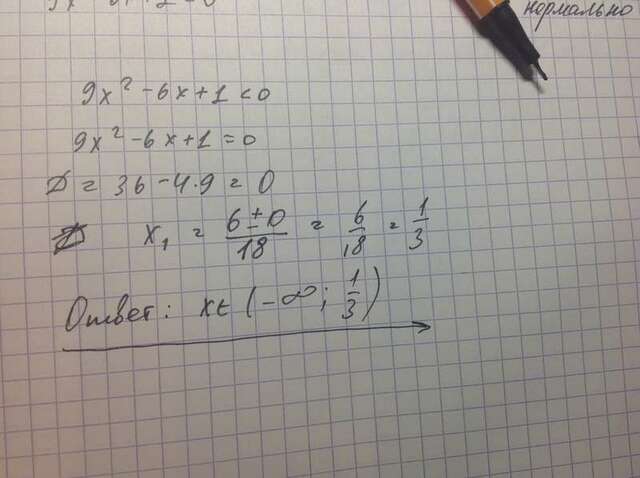 нормально
9x² - 6x + 1 < 0
9x² - 6x + 1 = 0
D = 36 - 4·9 = 0
x₁ = (6 ± 0)/18 = 6/18 = 1/3
Ответ: x ∈ (-∞; 1/3)